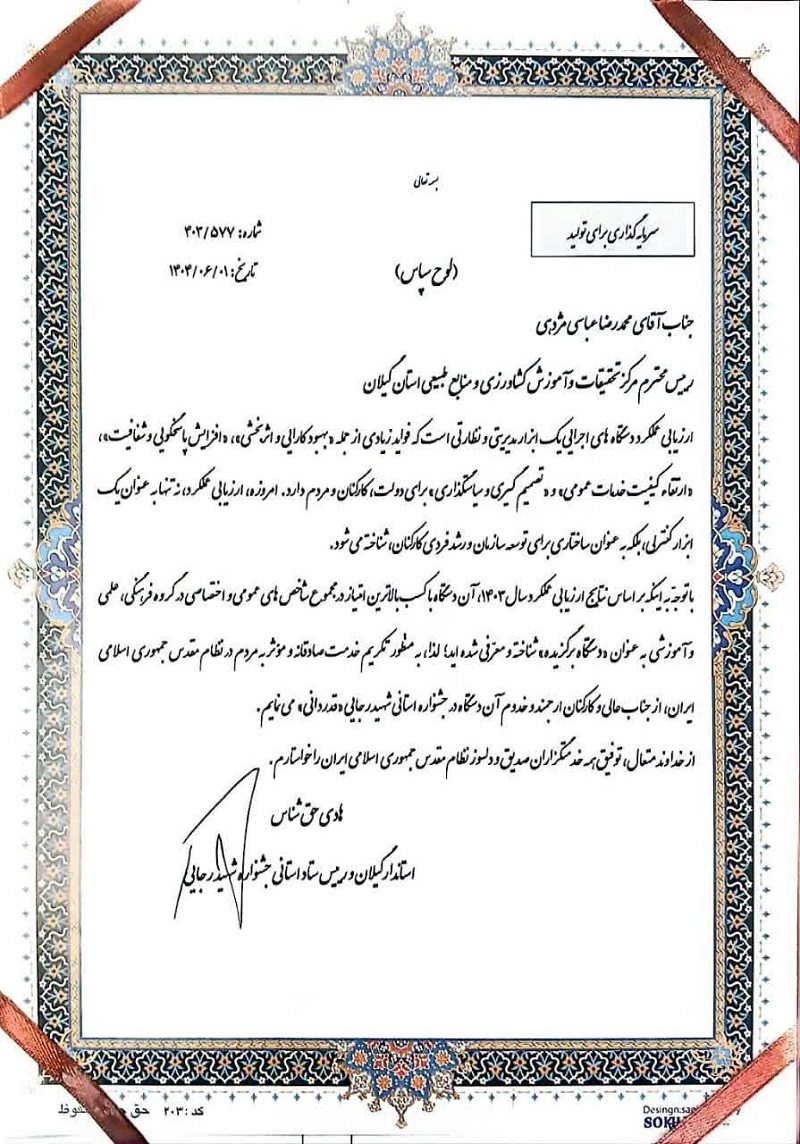 بسمه تعالی
سرمایه گذاری برای تولید
شماره: ۴۰۳/۵۷۷
تاریخ: ۱۴۰۴/۰۶/۰۱
(لوح سپاس)
جناب آقای محمدرضا عباسی مژدهی
رییس محترم مرکز تحقیقات و آموزش کشاورزی و منابع طبیعی استان گیلان
ارزیابی عملکرد دستگاه های اجرایی یک ابزار مدیریتی و نظارتی است که فواید زیادی از جمله «بهبود کارایی و اثربخشی»، «افزایش پاسخگویی و شفافیت»،
«ارتقاء کیفیت خدمات عمومی» و «تصمیم گیری و سیاستگذاری» برای دولت، کارکنان و مردم دارد. امروزه، ارزیابی عملکرد، نه تنها به عنوان یک
ابزار کنترلی، بلکه به عنوان ساختاری برای توسعه سازمان و رشد فردی کارکنان، شناخته می شود.
با توجه به اینکه بر اساس نتایج ارزیابی عملکرد سال ۱۴۰۳، آن دستگاه با کسب بالاترین امتیاز در مجموع شاخص های عمومی و اختصاصی در گروه فرهنگی، علمی
و آموزشی به عنوان «دستگاه برگزیده» شناخته و معرفی شده اید؛ لذا، به منظور تکریم خدمت صادقانه و مؤثر به مردم در نظام مقدس جمهوری اسلامی
ایران، از جناب عالی و کارکنان ارجمند و خدوم آن دستگاه در جشنواره استانی شهید رجایی «قدردانی» می نمایم.
از خداوند متعال، توفیق همه خدمتگزاران صدیق و دلسوز نظام مقدس جمهوری اسلامی ایران را خواستارم.
هادی حق شناس
استاندار گیلان و رییس ستاد استانی جشنواره شهید رجایی
کد: ۲۰۳ حق